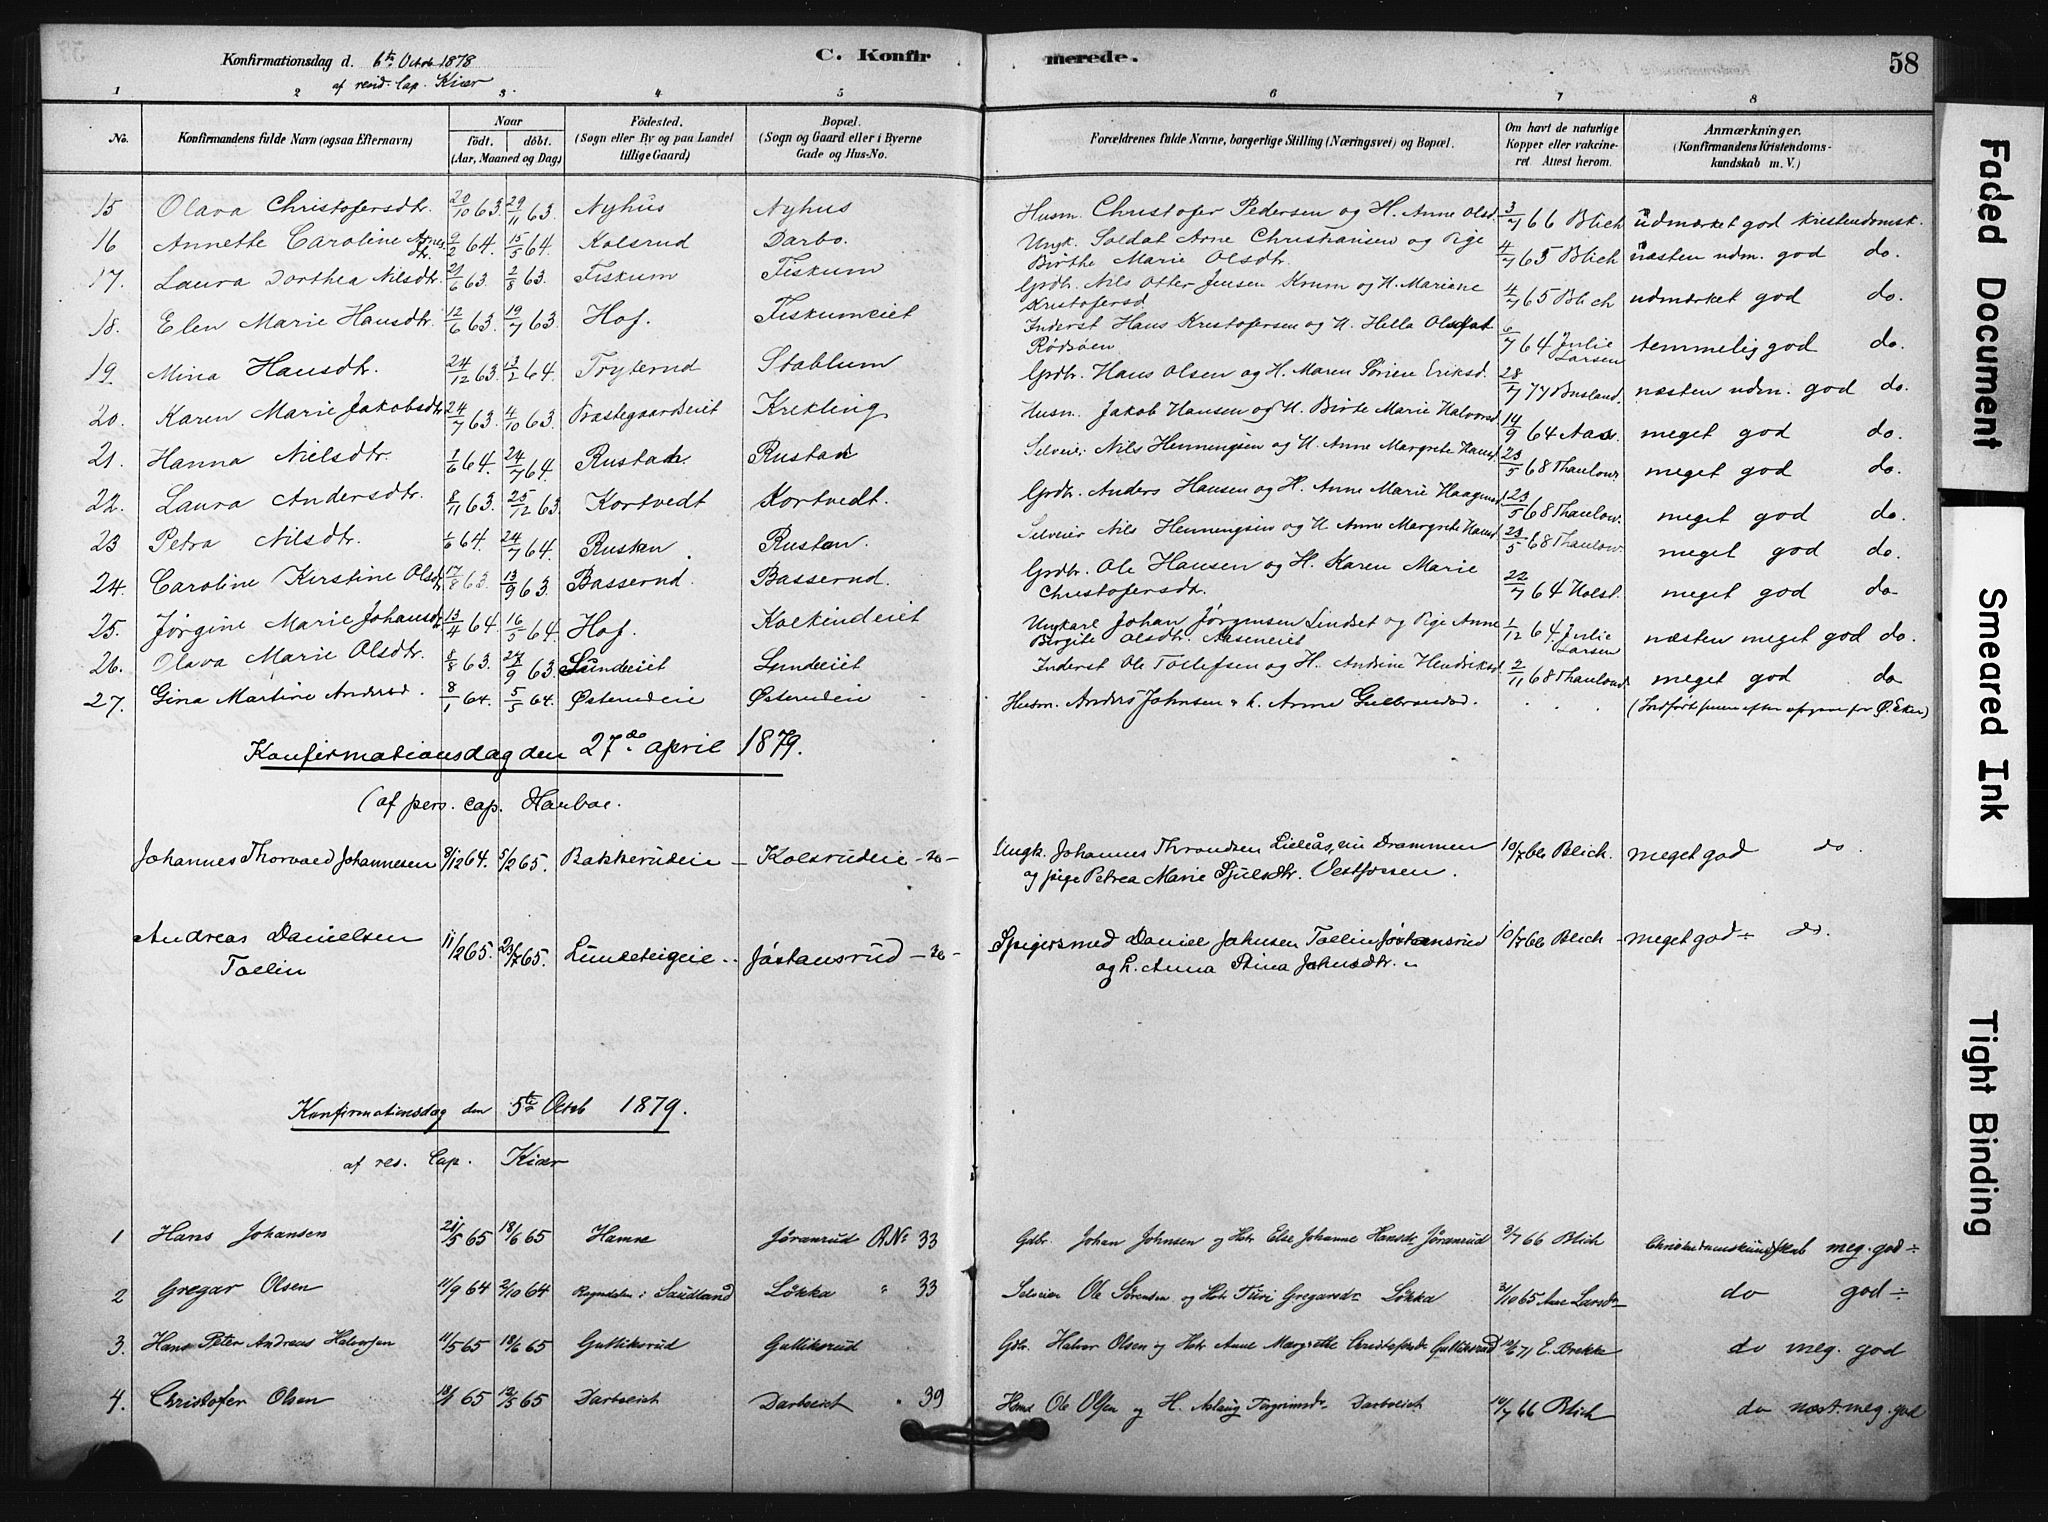 Konfirmationsdag d. 6te Octob 1878 C. Konfirmerede. 58
af resid. Cap. Kiær
1 2 3. 4 5 6 7 8
No. Konfirmandens fulde Navn (ogsaa Efternavn) Naar født. døbt. (Aar, Maaned og Dag) Fødested. (Sogn eller By og paa Landet tillige Gaard) Bopæl. (Sogn og Gaard eller i Byerne Gade og Hus-No. Forældrenes fulde Navne, borgerlige Stilling (Næringsvei) og Bopæl. Om havt de naturlige Kopper eller vakcineret. Attest herom. Anmærkninger. (Konfirmandens Kristendomskundskab m. V.)
15 Olava Christofersdtr. 20/10 63. 29/11 63. Nyhus Nyhus Husm. Christofer Pedersen og H. Anne Olsd. 3/7 66 Blich udmærket god kristendomsk.
16 Annette Caroline Arnesdtr. 9/2 64. 15/5 64. Kolsrud Darbo. Ungk. Soldat Arne Christiansen og Pige Birthe Marie Olsdtr. 4/7 65 Blich næsten udm. god do.
17. Laura Dorthea Nilsdtr. 21/6 63. 2/8 63. Fiskum Fiskum Grdbr. Nils Otter Jensen Krum og H. Mariane Kristofersd 4/7 65 Blich udmærket god do.
18. Elen Marie Hansdtr. 12/6 63. 19/7 63. Hof. Fiskumeiet Inderst Hans Kristofersen og H. Hella Olsdat Rødsøen 6/7 64 Julie Larsen temmelig god do.
19. Mina Hansdtr. 24/12 63. 13/2 64. Tryterud Stablum Grdbr. Hans Olsen og H. Maren Sørine Eriksd. 28/7 77 Busland. næsten udm. god do.
20. Karen Marie Jakobsdtr 24/7 63. 4/10 63. Præstegaardseiet Krekling Husm. Jakob Hansen og H. Birte Marie Halvorsd 14/9 64 Aas. meget god do.
21. Hanna Nielsdtr. 1/6 64. 24/7 64. Rustan. Rustan Selveier Nils Henningsen og H. Anne Margrete Hansd 23/5 68 Thaulow. meget god do.
22. Laura Andersdtr. 8/11 63. 25/12 63. Kortvedt Kortvedt. Grdbr. Anders Hansen og H. Anne Marie Haagensd 23/5 68 Thaulow. meget god do.
23 Petra Nilsdtr. 1/6 64. 24/7 64. Rustan. Rustan. Selveier Nils Henningsen og H. Anne Margrete Hansd 23/5 68 Thaulow. meget god do.
24. Caroline Kirstine Olsdtr 17/8 63. 13/9 63. Basserud. Basserud. Grdbr. Ole Hansen og H. Karen Marie Christofersdtr. 22/7 64 Holst. meget god do
25. Jørgine Marie Johansdtr 13/4 64 16/5 64. Hof. Kolkindeiet Ungkarl Johan Jørgensen Lindset og Pige Anne Birgite Olsdtr. Aaseneiet 1/12 64. Julie Larsen næsten meget god do.
26. Olava Marie Olsdtr. 8/8 63. 24/9 63. Lundeiet Lundeiet Inderst Ole Tollefsen og H. Andrine Hendriksd. 2/11 68 Thaulow meget god do
27. Gina Martine Andersd. 8/1 64. 5/5 64. Østerudeie Østerudeie Husm. Anders Johnsen & h. Anne Gulbrandsd. . . . (Indført senere efter opgave fra Ø. Eker)
Konfirmationsdag den 27de april 1879.
(af pers. cap. Harboe.
Johannes Thorvald Johannesen 8/12 64. 5/2 65. Bakkerudeie – Kolsrudeie – Ungk. Johannes Throndsen Lieleås, Drammen 10/7 66 Blich. meget god do.
og pige Petrea Marie Sjulsdtr. Vestfossen.
Andreas Danielsen 11/2 65. 23/7 65. Jøstansrud Spigersmed Daniel Johnsen Tollin Jøstansrud 10/7 66 Blich – meget god – do.
Tollin og h. Anna Stina Johnsdtr.
Konfirmationsdag den 5te Octob 1879.
af res. Cap. Kiær
1 Hans Johansen 21/5 65 18/6 65 Hamre Jøranrud R.No 33 Gdbr. Johan Johnsen og Hstr Else Johanne Hansdr Jøranrud 3/7 66 Blich Christendomskundskab meg. god ÷
2 Gregar Olsen 11/9 64 2/10 64 Saudland Løkka " 33 Selveier Ole Sørensen og Hstr Turi Gregarsdr Løkka 31/10 65 Ane Larsdr do god ÷
3. Hans Peter Andreas Halvorsen 11/5 65 18/6 65 Gulliksrud Gulliksrud Gdbr. Halvor Olsen og Hstr Ane Margrethe Christofersdr Gulliksrud 12/6 71 E. Brekke do meg. god
4. Christofer Olsen 18/1 65 12/3 65 Darboeiet Darboeiet " 39 Hsmd Ole Olsen og H. Aslaug Torgrimsdr Darboeiet 10/7 66 Blich do næst. meg. god
Faded Document
Smeared Ink
Tight Binding